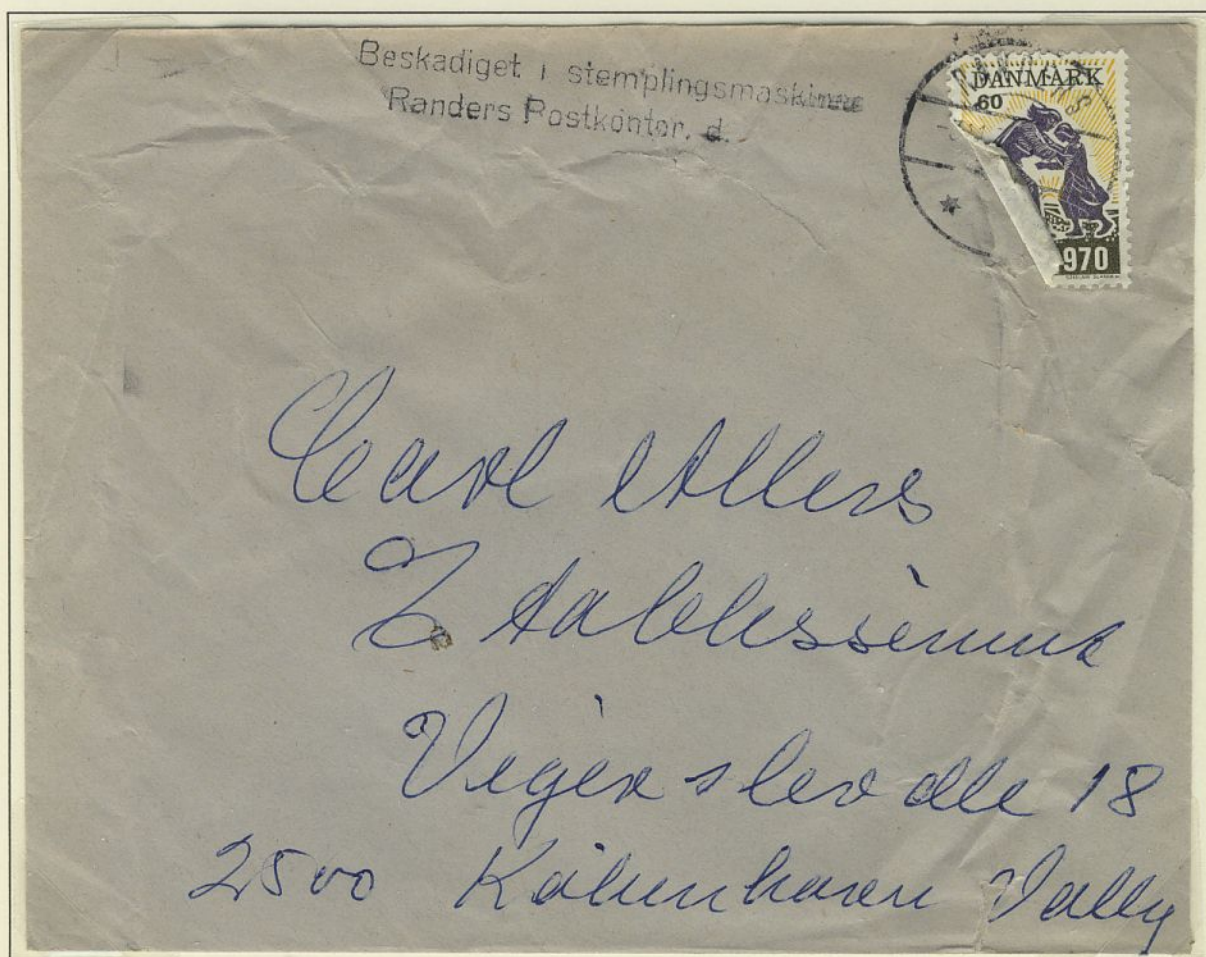 Beskadiget i stemplingsmaskinen
Randers Postkontor. d.
DANMARK
60
1970
Carl Allers
Etablissement
Vigerslev alle 18
2500 København Valby